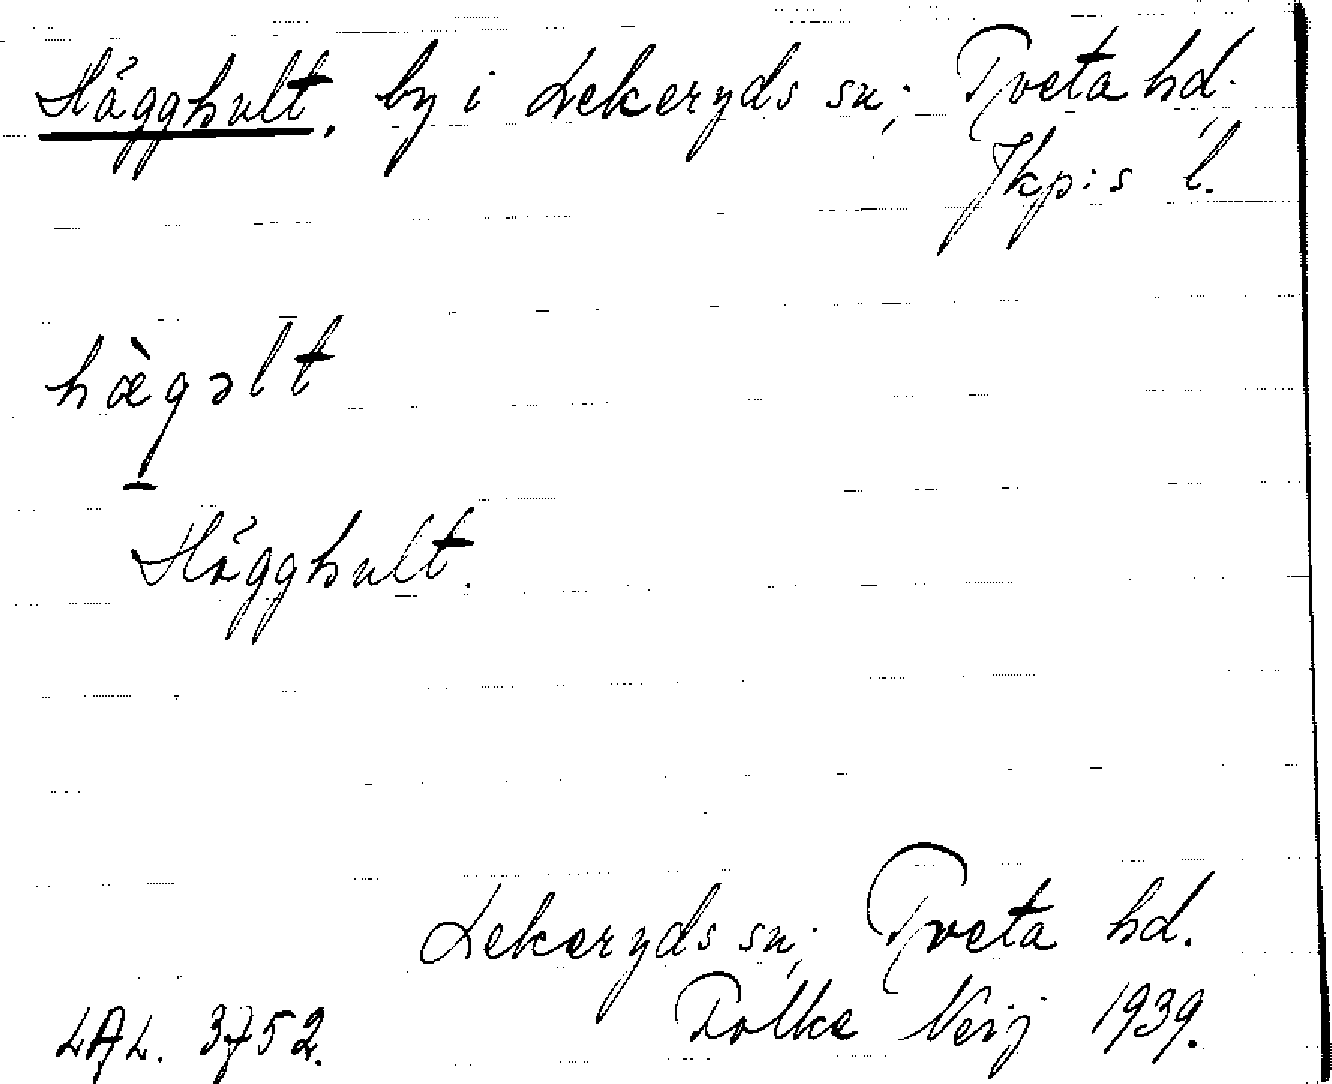 Hägghult, by i Lekeryds sn; Tveta hd;
Jkp:s l.
hæ̀gəlt
Hägghult.
Lekeryds sn; Tveta hd.
LAL. 3752. Folke Neij 1939.